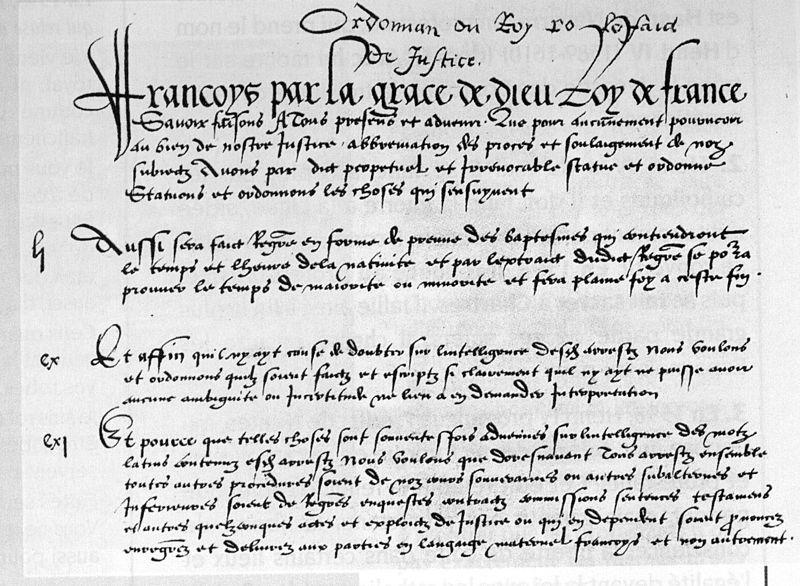 Ordonnan du Roy
De Justice.
Francoys par la grace de dieu Roy de france
Savoir faisons A Tous presens et advenir. Que pour aucunement pourveoir
au bien de nostre Justice, abbreviation des proces et soulaigement de noz
subiectz Avons par dict perpetuel et Irrevocable statue et ordonne
Statuons et ordonnons les choses qui sensuyvent
Aussi sera faict Regre en forme de preuve des baptesmes qui contiendront
le temps et lheure dela nativite et par lextraict dudict Regre se porra
prouver le temps de maiorite ou minorite et fera plaine foy a ceste fin.
cx Et affin quil ny ayt cause de doubter sur lintelligence desdz arrestz Nous voulons
et ordonnons quilz soient faictz et escriptz si clairement quil ny ayt ne puisse avoir
aucune ambiguite ou Incertitude ne lieu a en demander Interpretation
cxj Et pource que telles choses sont souventesfois advenues sur lintelligence des motz
latins contenuz esdz arrestz Nous voulons que doresnavant Tous arrestz ensemble
toutes autres procedures soient de noz cours souveraines ou autres subalternes et
Inferieures soient de Regres enquestes contractz commissions sentences testamens
et autres quelzconques actes et exploictz de Justice ou qui en dependent soient pnoncez
enregrez et delivrez aux parties en langaige maternel francoys et non autrement.